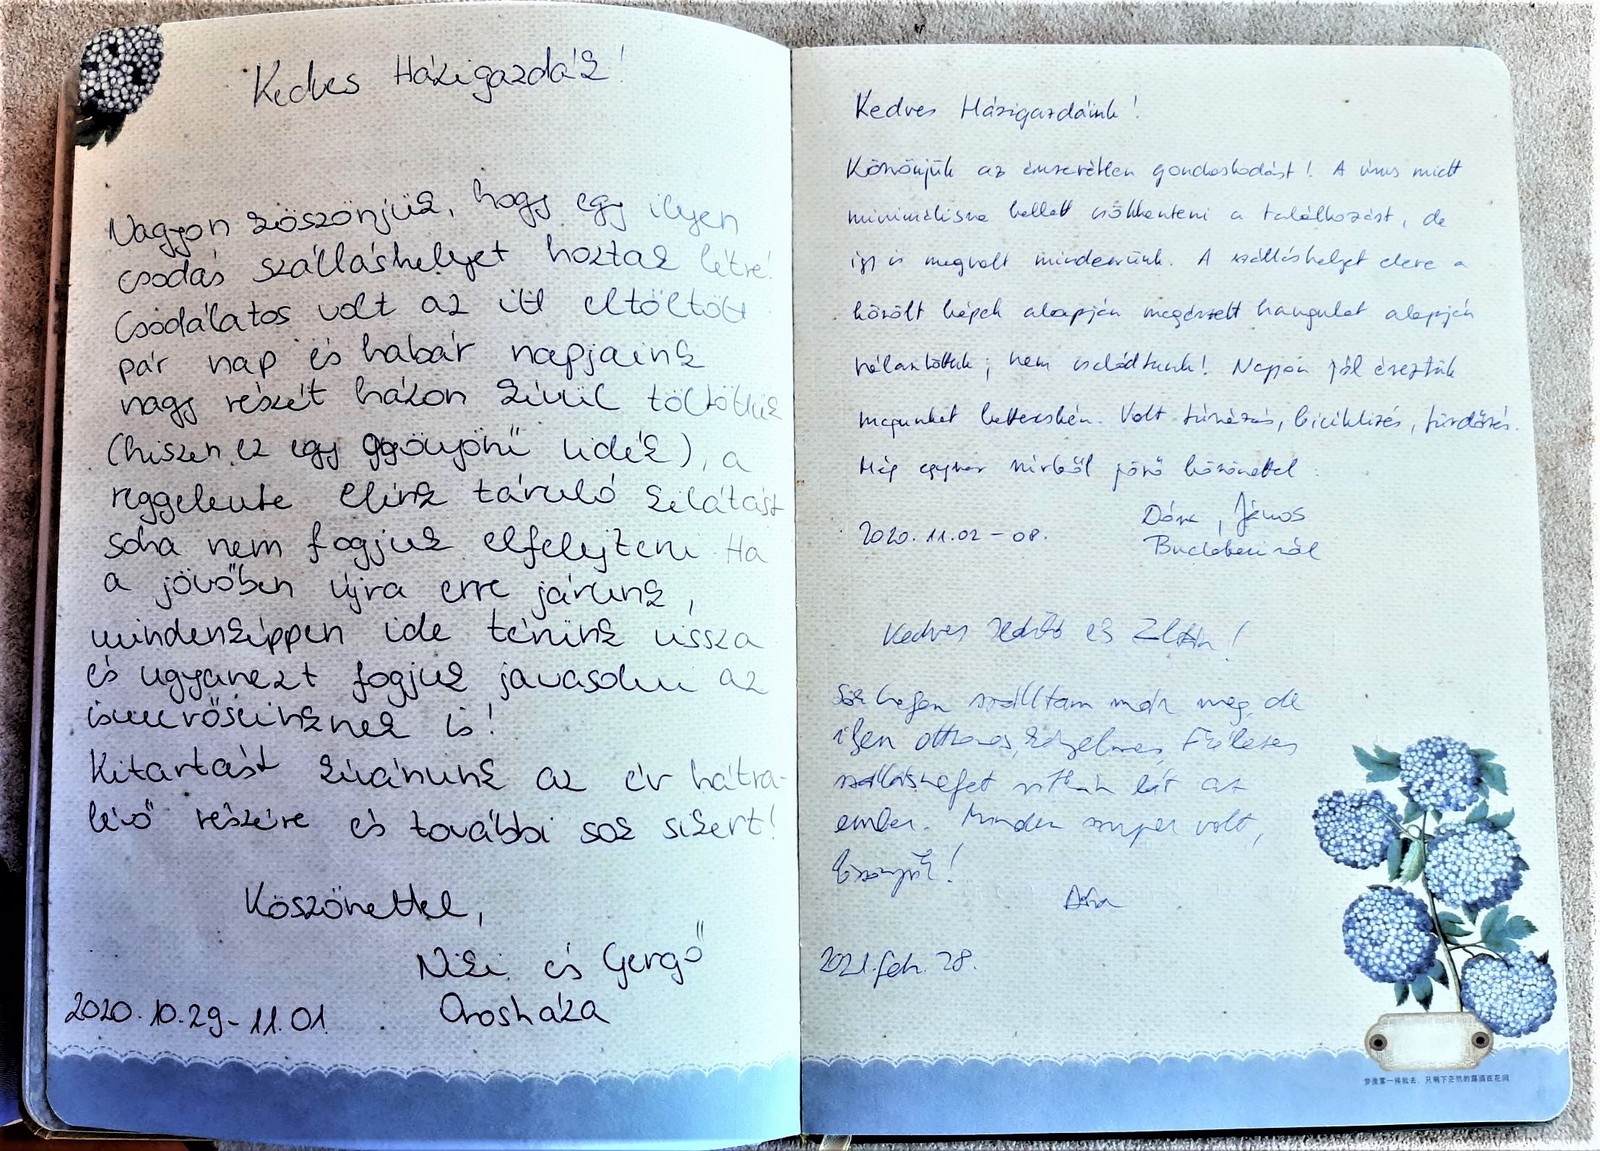 Kedves Házigazdák!
Nagyon köszönjük, hogy egy ilyen
csodás szálláshelyet hoztak létre!
Csodálatos volt az itt eltöltött
pár nap és habár napjaink
nagy részét házon kívül töltöttük
(hiszen ez egy gyönyörű vidék), a
reggelente elénk táruló kilátást
soha nem fogjuk elfelejteni. Ha
a jövőben újra erre járunk,
mindenképpen ide térünk vissza
és ugyanezt fogjuk javasolni az
ismerőseinknek is!
Kitartást kívánunk az év hátra-
lévő részére és további sok sikert!
Köszönettel,
Niki és Gergő
Orosháza
2020.10.29-11.01.
Kedves Házigazdáink!
Köszönjük az észrevétlen gondoskodást! A vírus miatt
minimálisra kellett csökkenteni a találkozást, de
így is megvolt mindenünk. A szálláshelyet eleve a
közölt képek alapján megérzett hangulat alapján
választottuk; nem csalódtunk! Nagyon jól éreztük
magunkat kettecskén. Volt túrázás, biciklizés, fürdőzés.
Még egyszer szívből jövő köszönettel
Dóra, János
2020.11.02-08.
Kedves és Zoltán!
Sok helyen szálltam már meg, de
ilyen otthonos, kényelmes,
szálláshelyet ritkán lát az
ember. Minden szuper volt,
2021. feb. 28.